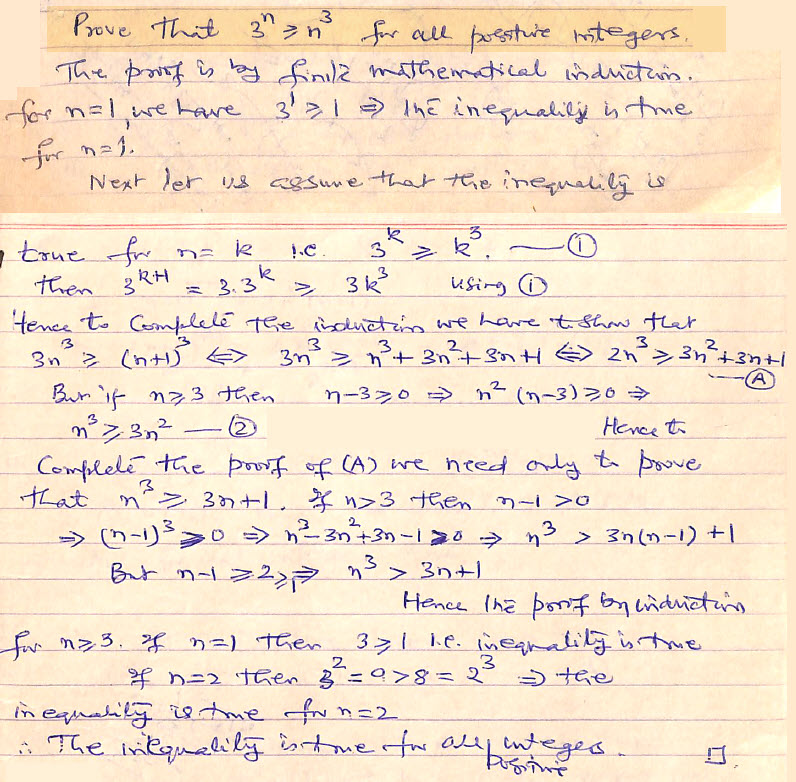 Prove that 3ⁿ ≥ n³ for all positive integers.
The proof is by finite mathematical induction.
for n=1, we have 3¹ ≥ 1 ⇒ the inequality is true
for n=1.
Next let us assume that the inequality is
true for n = k i.e. 3ᵏ ≥ k³. — ①
then 3ᵏ⁺¹ = 3.3ᵏ ≥ 3k³ using ①
Hence to complete the induction we have to show that
3n³ ≥ (n+1)³ ⇔ 3n³ ≥ n³ + 3n² + 3n + 1 ⇔ 2n³ ≥ 3n² + 3n + 1
— Ⓐ
But if n ≥ 3 then n-3 ≥ 0 ⇒ n² (n-3) ≥ 0 ⇒
n³ ≥ 3n² — ② Hence to
Complete the proof of (A) we need only to prove
that n³ ≥ 3n+1. If n>3 then n-1 >0
⇒ (n-1)³ ≥ 0 ⇒ n³ - 3n² + 3n - 1 ≥ 0 ⇒ n³ > 3n(n-1) +1
But n-1 ≥ 2 >1 ⇒ n³ > 3n+1
Hence the proof by induction
for n ≥ 3. If n=1 then 3 ≥ 1 i.e. inequality is true
If n=2 then 3² = 9 > 8 = 2³ ⇒ the
inequality is true for n=2
∴ The inequality is true for all positive integers. □